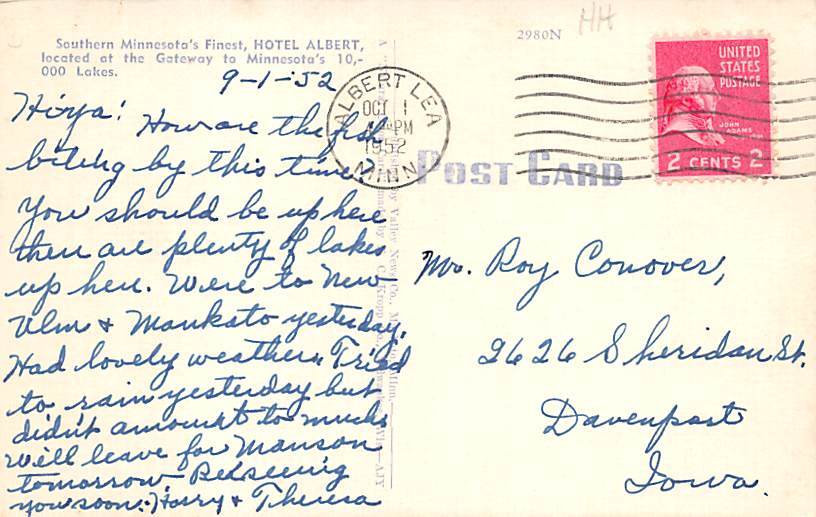 2980N
HH
Southern Minnesota's Finest, HOTEL ALBERT,
located at the Gateway to Minnesota's 10,-
000 Lakes.
9-1-'52
Hiya!
How are the fish
biting by this time?
You should be up here
there are plenty of lakes
up here. Were to New
Ulm & Mankato yesterday.
Had lovely weather. Tried
to rain yesterday but
didn't amount to much
we'll leave for Manson
tomorrow. Be seeing
you soon. Harry & Theresa
ALBERT LEA
OCT 1
PM
1952
MINN.
UNITED
STATES
POSTAGE
JOHN
ADAMS
2 CENTS 2
POST CARD
Mr. Roy Conover,
2626 Sheridan St.
Davenport
Iowa.